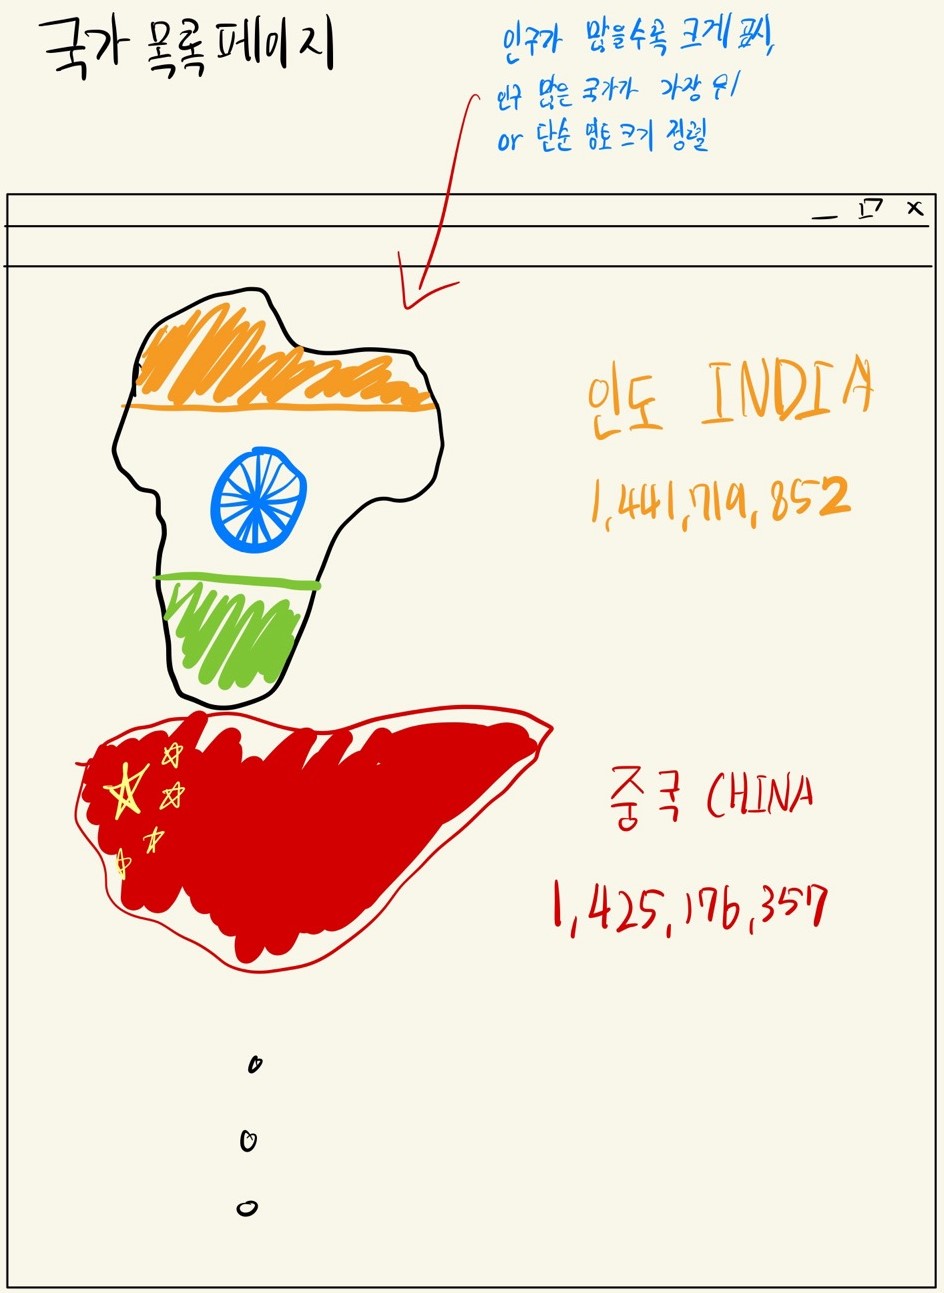 국가 목록 페이지
인구가 많을수록 크게 표시,
인구 많은 국가가 가장 위
or 단순 영토 크기 정렬
인도 INDIA
1,441,719,852
중국 CHINA
1,425,176,357